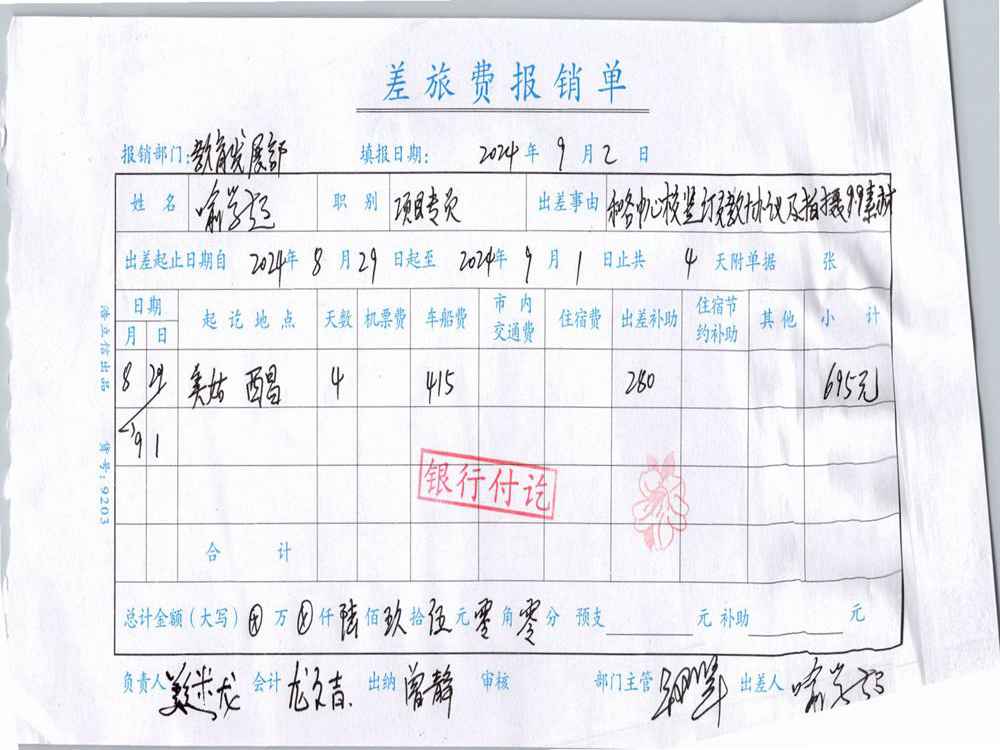 差旅费报销单
报销部门：教育发展部 填报日期： 2024 年 9 月 2 日
姓 名 喻学 职 别 项目专员 出差事由 和各中心校签订 协议及拍摄99素材
出差起止日期自 2024 年 8 月 29 日起至 2024 年 9 月 1 日止共 4 天附单据 张
日期 起讫地点 天数 机票费 车船费 市内交通费 住宿费 出差补助 住宿节约补助 其他 小 计
月 日
8 29 美姑 西昌 4 415 280 695元
9 1
银行付讫
合 计
总计金额（大写） ⊗ 万 ⊗ 仟 陆 佰 玖 拾 伍 元 零 角 零 分 预支 元 补助 元
负责人 会计 出纳 曾静 审核 部门主管 出差人 喻学
浩立信出品 货号：9203